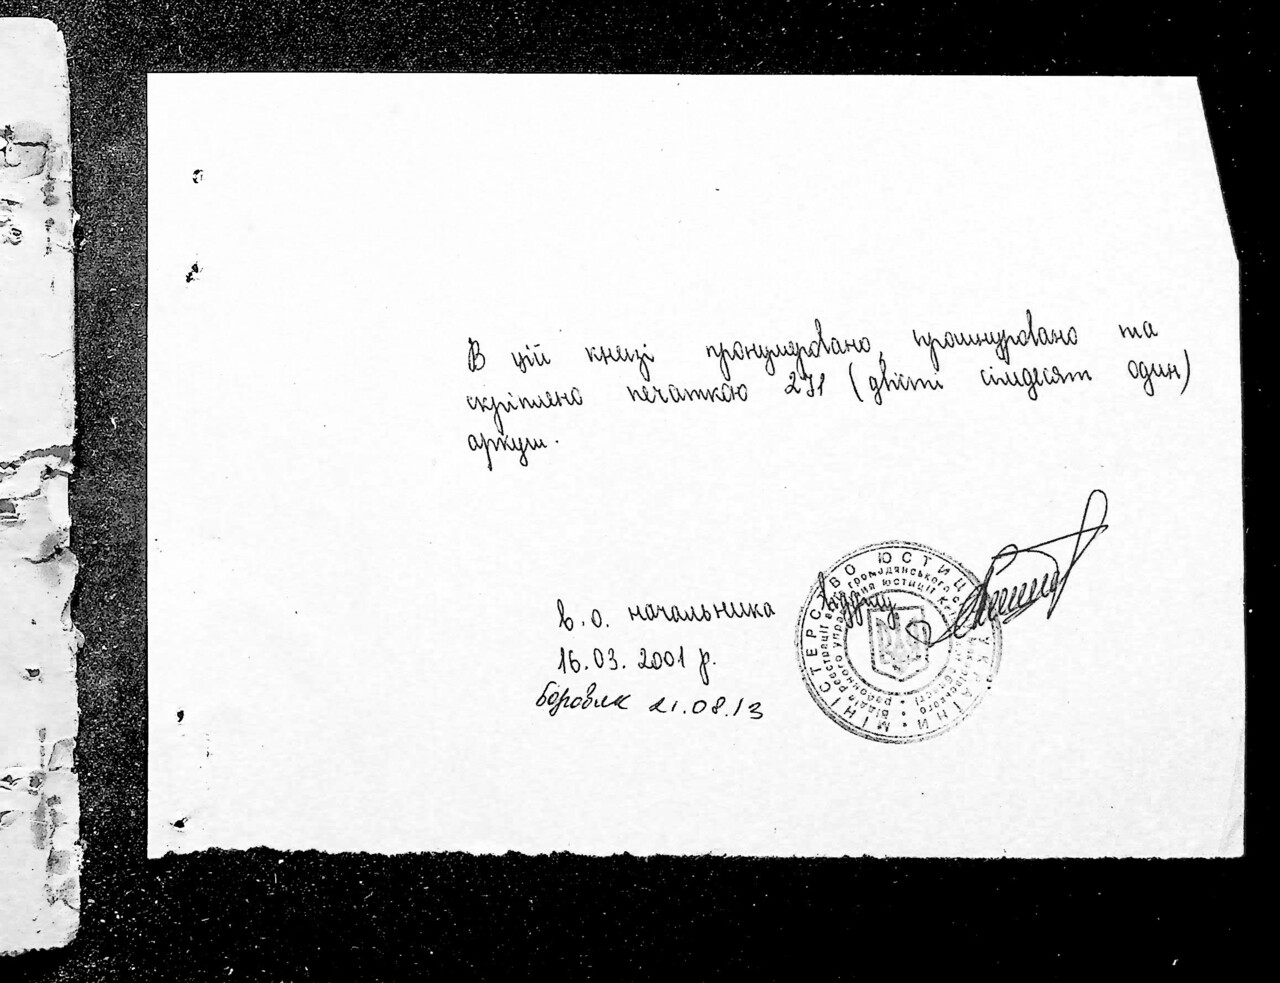 В цій книзі пронумеровано, прошнуровано та
скріплено печаткою 271 (двісті сімдесят один)
аркуш.
В. о. начальника
відділу
16.03.2001 р.
Боровик 21.08.13
МІНІСТЕРСТВО ЮСТИЦІЇ УКРАЇНИ
Відділ реєстрації актів громадянського
районного управління юстиції
області